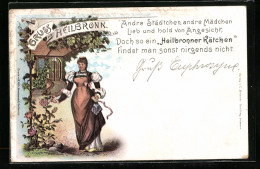 GRUSS
HEILBRONN.
Andre Städtchen, andre Mädchen
Lieb und hold von Angesicht,
Doch so ein „Heilbronner Kätchen"
findet man sonst nirgends nicht.
Gruß Euphrosyne